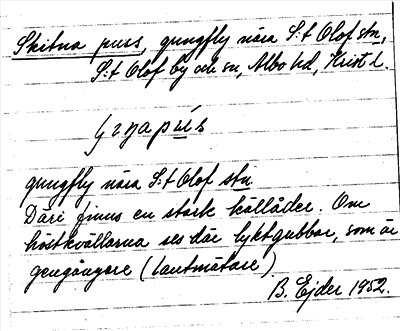 Skitna puss, gungfly nära S:t Olof stn,
S:t Olof by och sn, Albo hd, Krist. l.
gungfly nära S:t Olof stn.
Däri finns en stark källåder. Om
höstkvällarna ses där lyktgubbar, som är
gengångare (lantmätare).
B. Ejder 1952.